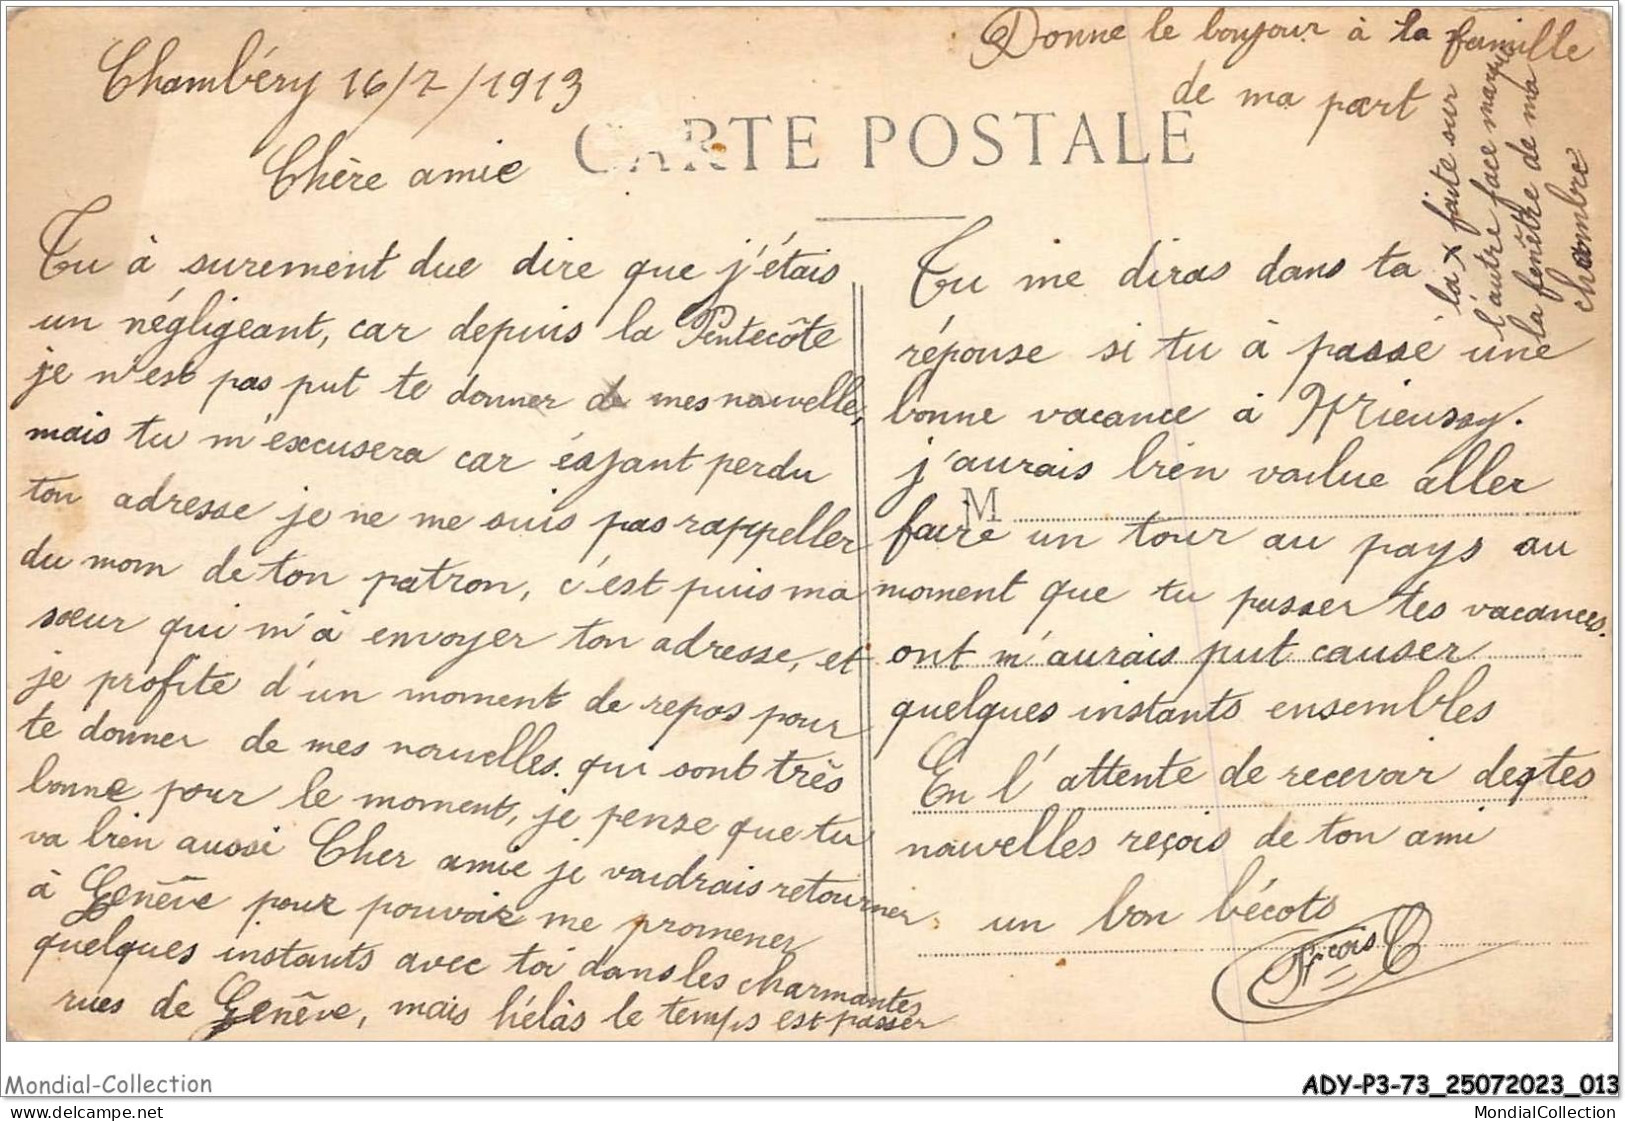 Donne le bonjour à la famille
de ma part
Chambéry 16/7/1913
CARTE POSTALE
Chère amie
Tu à surement due dire que j'étais
un négligeant, car depuis la Pentecôte
je n'est pas put te donner de mes nouvelle,
mais tu m'excusera car éajant perdu
ton adresse je ne me suis pas rappeller
du mom de ton patron, c'est puis ma
sœur qui m'à envoyer ton adresse, et
je profite d'un moment de repos pour
te donner de mes nouvelles. qui sont très
bonne pour le moment, je pense que tu
va bien aussi Cher amie je voudrais retourner
à Genêve pour pouvoir me promener
quelques instants avec toi dans les charmantes
rues de Genêve, mais hélàs le temps est passer
Tu me diras dans ta
réponse si tu à passé une
bonne vacance à Mieussy.
j'aurais bien voulue aller
M
faire un tour au pays au
moment que tu passer tes vacances.
ont m'aurais put causer
quelques instants ensembles
En l'attente de recevoir de tes
nouvelles reçois de ton ami
un bon bécots
Fçois C
la x faite sur
l'autre face marque
la fenêtre de ma
chambre
Mondial-Collection
ADY-P3-73_25072023_013
www.delcampe.net
MondialCollection